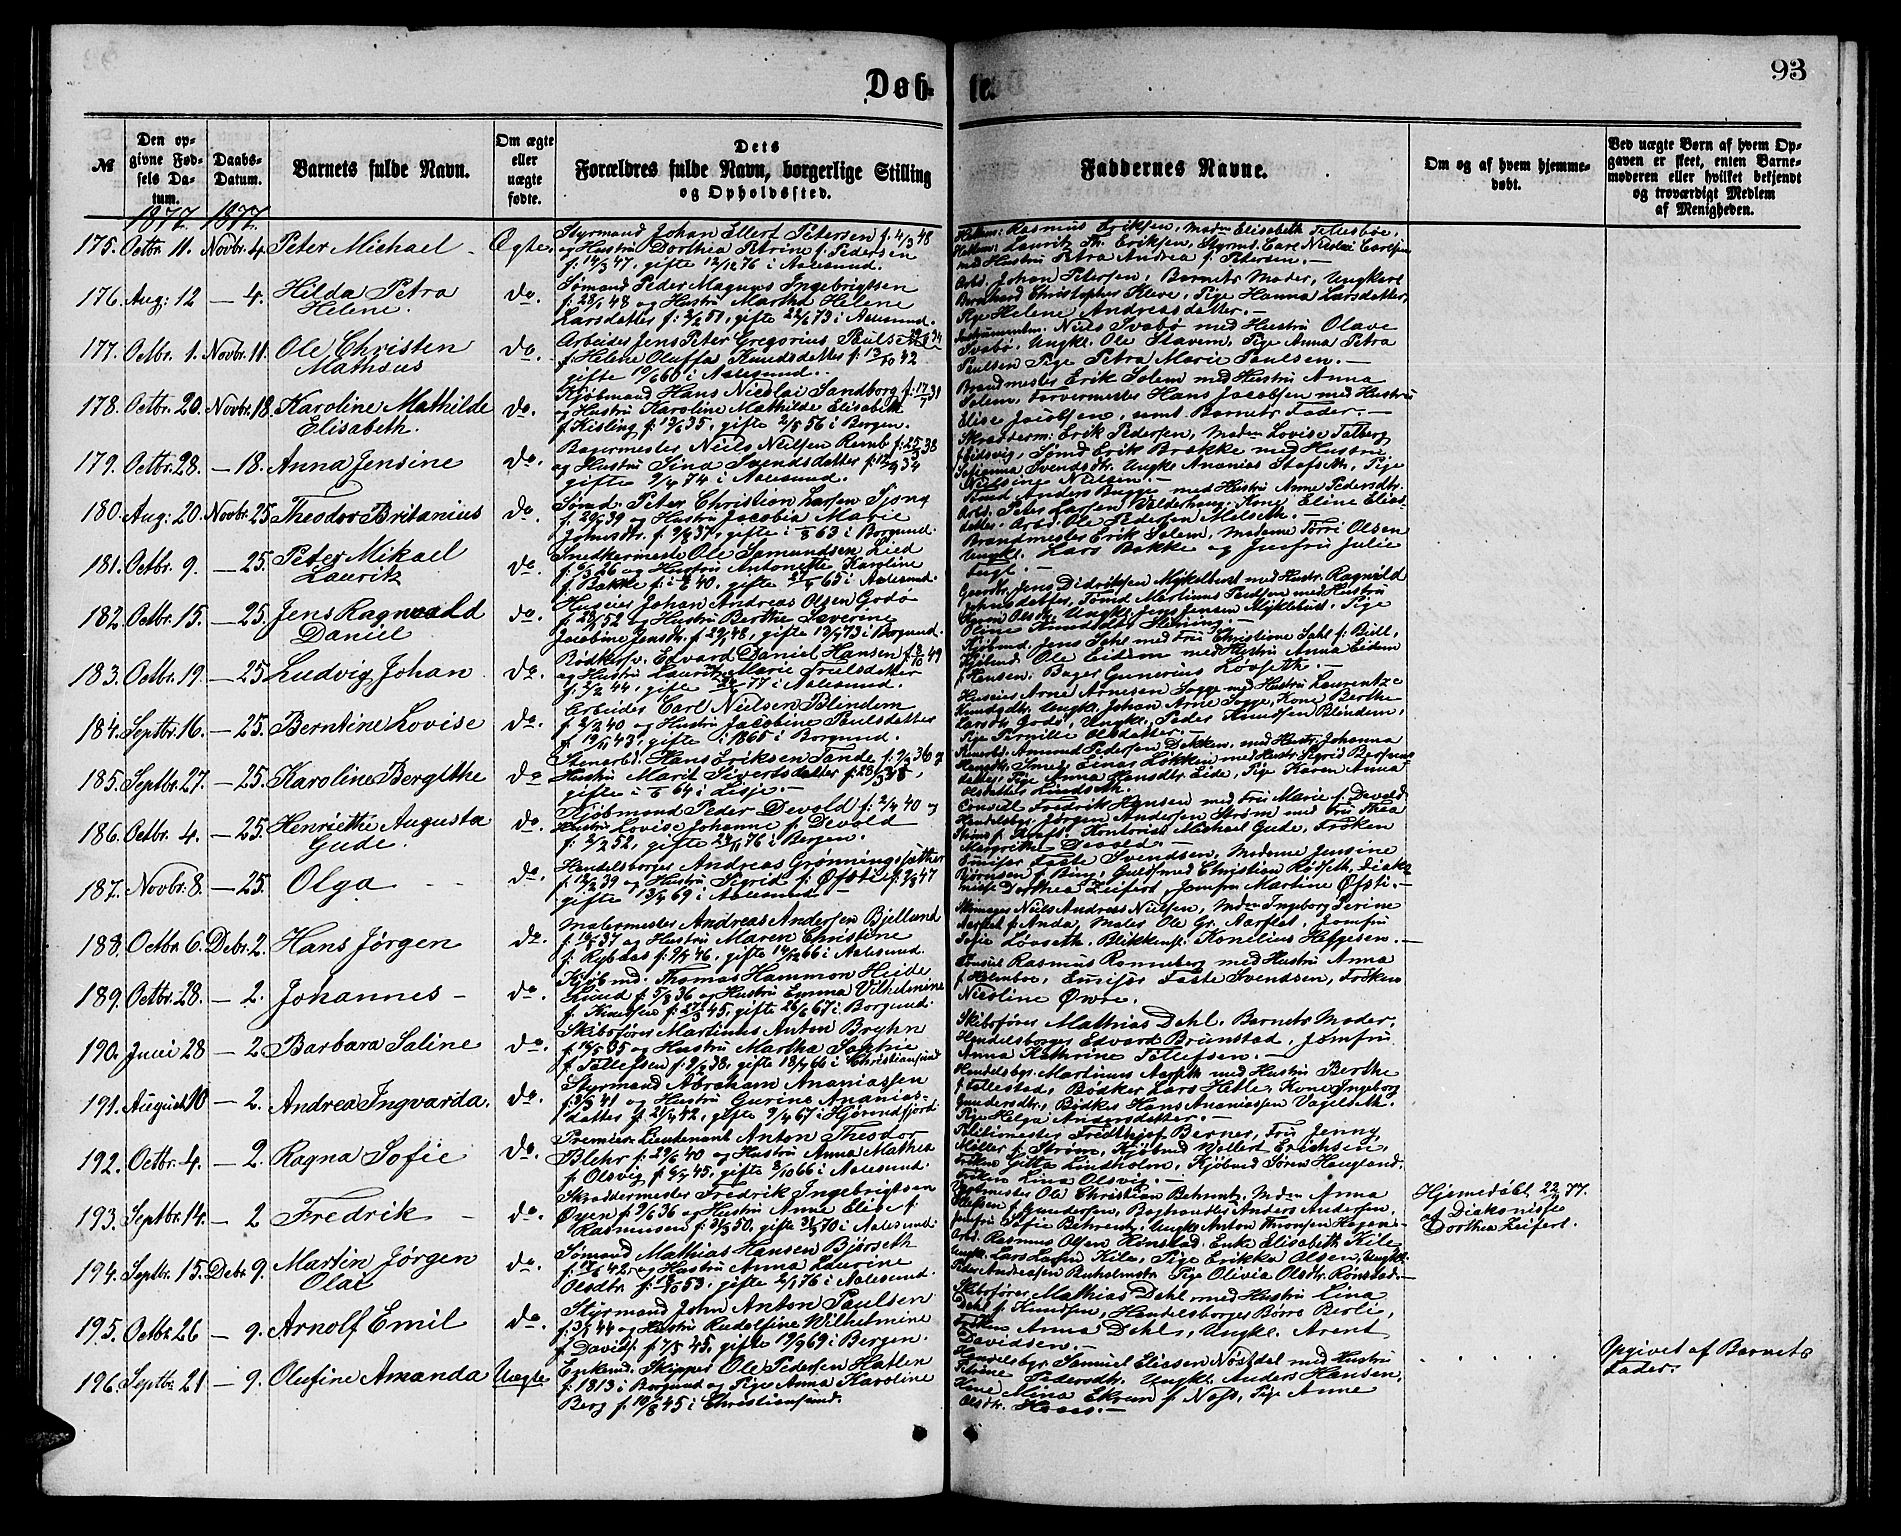 93
Døb-
te.
№
Den opgivne Fødsels Datum.
Daabs-Datum.
Barnets fulde Navn.
Om ægte eller uægte fødte.
Dets Forældres fulde Navn, borgerlige Stilling og Opholdssted.
Faddernes Navne.
Om og af hvem hjemmedøbt.
Ved uægte Børn af hvem Opgaven er skeet, enten Barnemoderen eller hvilket bekjendt og troværdigt Medlem af Menigheden.
1877. 1877.
175. Octbr. 11. Novbr. 4. Peter Michael - Ægte.
Styrmand Johan Ellert Petersen f. 4/3 48
og Hustru Dorthea Petrine f. Pedersen
f. 14/3 47, gifte 12/12 76 i Aalesund.
Rasmus Eriksen, Madm Elisabeth
Lauritz Eriksen, Styrmd. Carl Nicolai Carlsen
med Hustru Petra Andrea f. Petersen. —
176. Aug: 12 — 4. Hilda Petra
Helene. do.
Sømand Peder Magnus Ingebrigtsen
f. 28/1 48 og Hustru Martha Helene
Larsdatter f. 2/2 51, gifte 22/6 73 i Aalesund.
Arbd. Johan Petersen, Barnets Moder, Ungkarl
Bernhard Christopher Kleve, Pige Hanna Larsdatter,
Pige Helene Andreasdatter. —
177. Octbr. 1. Novbr. 11. Ole Christen
Mathæus do.
Arbeider Jens Peter Gregorius Paulsen
f. Helene Oluffa Knudsdatter f. 13/10 42
gifte 19/6 60 i Aalesund.
Niels Svabø med Hustru Olave
Svabø, Ungkl. Ole Stavem, Pige Anna Petra
Paulsen Pige Petra Marie Paulsen. —
178. Octbr. 20. Novbr. 18. Karoline Mathilde
Elisabeth. do.
Kjøbmand Hans Nicolai Sandborg f. 17/7 31
og Hustru Karoline Mathilde Elisabeth
f. Kisling f. 19/6 35, gifte 2/5 56 i Bergen.
Brandmester Erik Solem med Hustru Anna
Solem, Farvermester Hans Jacobsen med Hustru
Elise Jacobsen, samt Barnets Fader. —
179. Octbr. 28. — 18. Anna Jensine do.
Bagermester Niels Nielsen Remb f. 25/3 38
og Hustru Sina Svendsdatter f. 12/9 34
gifte 9/4 74 i Aalesund.
Skrædderm. Erik Pedersen, Madm Lovise Talberg
Erik Brække med Hustru
Svendsdtr. Ungkl. Ananias Stafseth, Pige
Nielsine Nielsen. —
180. Aug: 20. Novbr. 25 Theodor Britanius do.
Sømd. Peter Christian Larsen Tjong
f. 29/5 39 og Hustru Jacobia Marie
Johnsdtr. f. 9/8 37, gifte 63 i Borgund.
Anders Bugge med Hustru Anne Pedersdtr.
Arbd. Peter Larsen Valderhaug, Kone Eline Elias-
datter. Arbd. Ole Pedersen Molseth. —
181. Octbr. 9. — 25. Peter Mikael
Lauritz do.
Snedkermester Ole Samundsen Lied
f. 6/5 36 og Hustru Antonette Karoline
f. Bakke f. 40, gifte 65 i Aalesund.
Brandmester Erik Solem, Maderne Torri Olsen
Ungkl. Lars Bakke og Jomfru Julie
Feigl. —
182. Octbr. 15. — 25. Jens Ragnvald
Daniel do.
Huseier Johan Andreas Olsen Godø
f. 23/2 52 og Hustru Berthe Severine
Jacobine Jensdtr. f. 29/4 48, gifte 19/9 73 i Borgund.
Jens Didriksen Myklebust med Hustr. Ragnild
Martinus med Hustru
Olsdtr. Ungkl. Jens Jensen Myklebust, Pige
183. Octbr. 19. — 25 Ludvig Johan do.
Bødkersv. Edvard Daniel Hansen f. 8/10 49
og Hustru Lauritze Marie Troelsdatter
f. 2/2 44, gifte 77 i Aalesund.
Kjøbmd. Jens Dahl med Fru Christiane Dahl f.
Ole Eidem med Hustru Anna Eidem
f. Hansen. Bager Gunerius Løvseth. —
184. Septbr. 16. — 25. Berntine Lovise do.
Arbeider Carl Nielsen Blindem
f. 2/2 40 og Hustru Jacobine Paulsdatter
f. 19/11 43, gifte i 1865 i Borgund.
Huseier Arne Arnesen Sogge med Hustru Laurentze
Knudsdtr. Ungkl. Johan Arne Sogge, Kone Berthe
Larsdtr. Godø, Ungkl. Peder Knudsen Blindem,
Pige Pernille Olsdatter. —
185. Septbr. 27. — 25. Karoline Bergithe do
Stenarbd. Hans Eriksen Tande f. 9/3 36 og
Hustru Marit Sivertsdatter
gifte i 64 i Lesje. —
Amund Pedersen Dokken, med Hustr. Johanna
Smed Einar Løkken med Hustr. Sigrid
datter, Pige Anna Hansdtr. Eide, Pige Karen Anna
Olsdatter Lindseth. —
186. Octbr. 4. — 25. Henriette Augusta
Gude. do.
Kjøbmand Peder Devold f. 2/4 40 og
Hustru Lovise Johanne f. Devold
f. 2/2 52, gifte 24/11 76 i Bergen.
Consul Fredrik Hansen med Fru Marie f. Devold.
Handelsbgr. Jørgen Andersen Strøm med Fru Thea
Strøm f. Kraft. Kontorist Michael Gude, Frøken
Margrethe Devold. —
187. Novbr. 8. — 25. Olga do.
Handelsborger Andreas Grønningsæther
f. 12/2 39 og Hustru Sigrid f. Øfsti f. 7/8 47
gifte 19/4 69 i Aalesund. —
Emisær Taste Svendsen, Maderne Jensine
Bjørnsen f. Bing, Guldsmed Christian Rødseth, Diako-
nisse Dorthea Zeifert, Jomfru Martine Øfsti. —
188. Octbr. 6. Debr. 2. Hans Jørgen do.
Malermester Andreas Andersen Bjelland
f. 16/8 37 og Hustru Maren Christine
f. Rypdas f. 7/4 46, gifte 14/12 66 i Aalesund.
Skomager Niels Andreas Nielsen, Mdm Ingeborg Serine
Aarflot f. Anda, Maler Ole Gr. Aarflot, Jomfru
Sofie Løvseth. Blikkensl. Kornelius Helgesen. —
189. Octbr. 28. — 2. Johannes — do.
Kjøbmd. Thomas Hammon Heide
Lund f. 5/8 36 og Hustru Emma Vilhelmine
f. Knudsen f. 27/5 45, gifte 26/6 67 i Borgund.
Consul Rasmus Rønneberg med Hustru Anna
f. Holmboe, Emisær Taste Svendsen, Frøken
Nicoline Øwre.
190. Juni 28 — 2 Barbara Saline do.
Skibsfører Martinus Anton Bryhn
f. 14/5 35 og Hustru Martha Sophie
f. Tollefsen f. 9/2 38, gifte 18/4 66 i Christiansund
Skibsfører Mathias Dehl, Barnets Moder,
Handelsborger Edvard Brunstad, Jomfru
Anna Kathrine Tollefsen. —
191. August 10 — 2. Andrea Ingvarda. do.
Styrmand Abraham Ananiassen
f. 3/6 41 og Hustru Gurine Ananias-
datter f. 21/2 42, gifte 9/4 67 i Hjørundfjord.
Handelsbgr. Martinus Aarseth med Hustru Berthe
f. Tallestad, Bødker Lars Hetle, Kone Ingeborg
Gundersdtr, Bødker Hans Ananiassen Vagelseth.
Pige Helga Andersdatter. —
192. Octbr. 4. — 2. Ragna Sofie do.
Premier-Lieutenant Anton Theodor
Blehr f. 29/6 40 og Hustru Anna Mathea
f. Olsvig f. 9/4 45, gifte 8/10 66 i Aalesund.
Politimester Fredthjof Berner, Fru Jenny
Møller f. Strøm, Kjøbmd Wollert Erichsen,
Frøken Gitta Lindholm, Kjøbmd Søren Haugland,
Frøken Lina Olsvig. —
193. Septbr. 14. — 2 Fredrik — do.
Skræddermester Fredrik Ingebrigtsen
Øyen f. 9/6 36 og Hustru Anne Elise f.
Rasmussen f. 31/3 50, gifte 31/5 70 i Aalesund.
Ole Christian Behrentz, Mdm Anna
Olefsen f. Gundersen, Boghandler Anders Andersen,
Jomfru Sofie Behrentz, Ungkl. Anton Thronsen Hagen. —
Hjemedøbt 22/9 77.
af Diakonisse
Dorthea Zeifert.
194. Septbr. 15. Debr. 9. Martin Jørgen
Olai do.
Sømand Mathias Hansen Bjørseth
f. 17/6 42, og Hustru Anna Laurine
Olsdtr. f. 53, gifte 2/1 76 i Aalesund.
Arbd. Rasmus Olsen Rønstad. Enke Elisabeth Kile,
Ungkl. Lars Larsen Kile, Pige Erikka Olsen, Ungkl.
Peter Andreasen Buholmstr. Pige Olivia Olsdtr. Rønstad. —
195. Octbr. 26 — 9. Arnolf Emil do.
Styrmand John Anton Paulsen
f. 3/1 44 og Hustru Rudolfine Wilhelmine
f. Davids. f. 7/8 45, gifte 19/9 69 i Bergen.
Skibsfører Mathias Dehl med Hustru Lina
Dehl f. Knudsen, Handelsborger Børre Berli,
Frøken Anna Dehls, Ungkl. Arent
Davidsen. —
196. Septbr. 21 — 9. Olufine Amanda Uægte
Enkemd. Skipper Ole Pedersen Hatlen
f. 1813 i Borgund og Pige Anna Karoline
Berg f. 10/8 45 i Christiansund.
Handelsbgr. Samuel Eliesen Nøstdal med Hustru
Petrine Pedersdtr. Ungkl. Anders Hansen,
Kone Mina Ekren f. Næss, Pige Anne
Olsdtr. Hovis. —
Opgivet af Barnets
Fader.